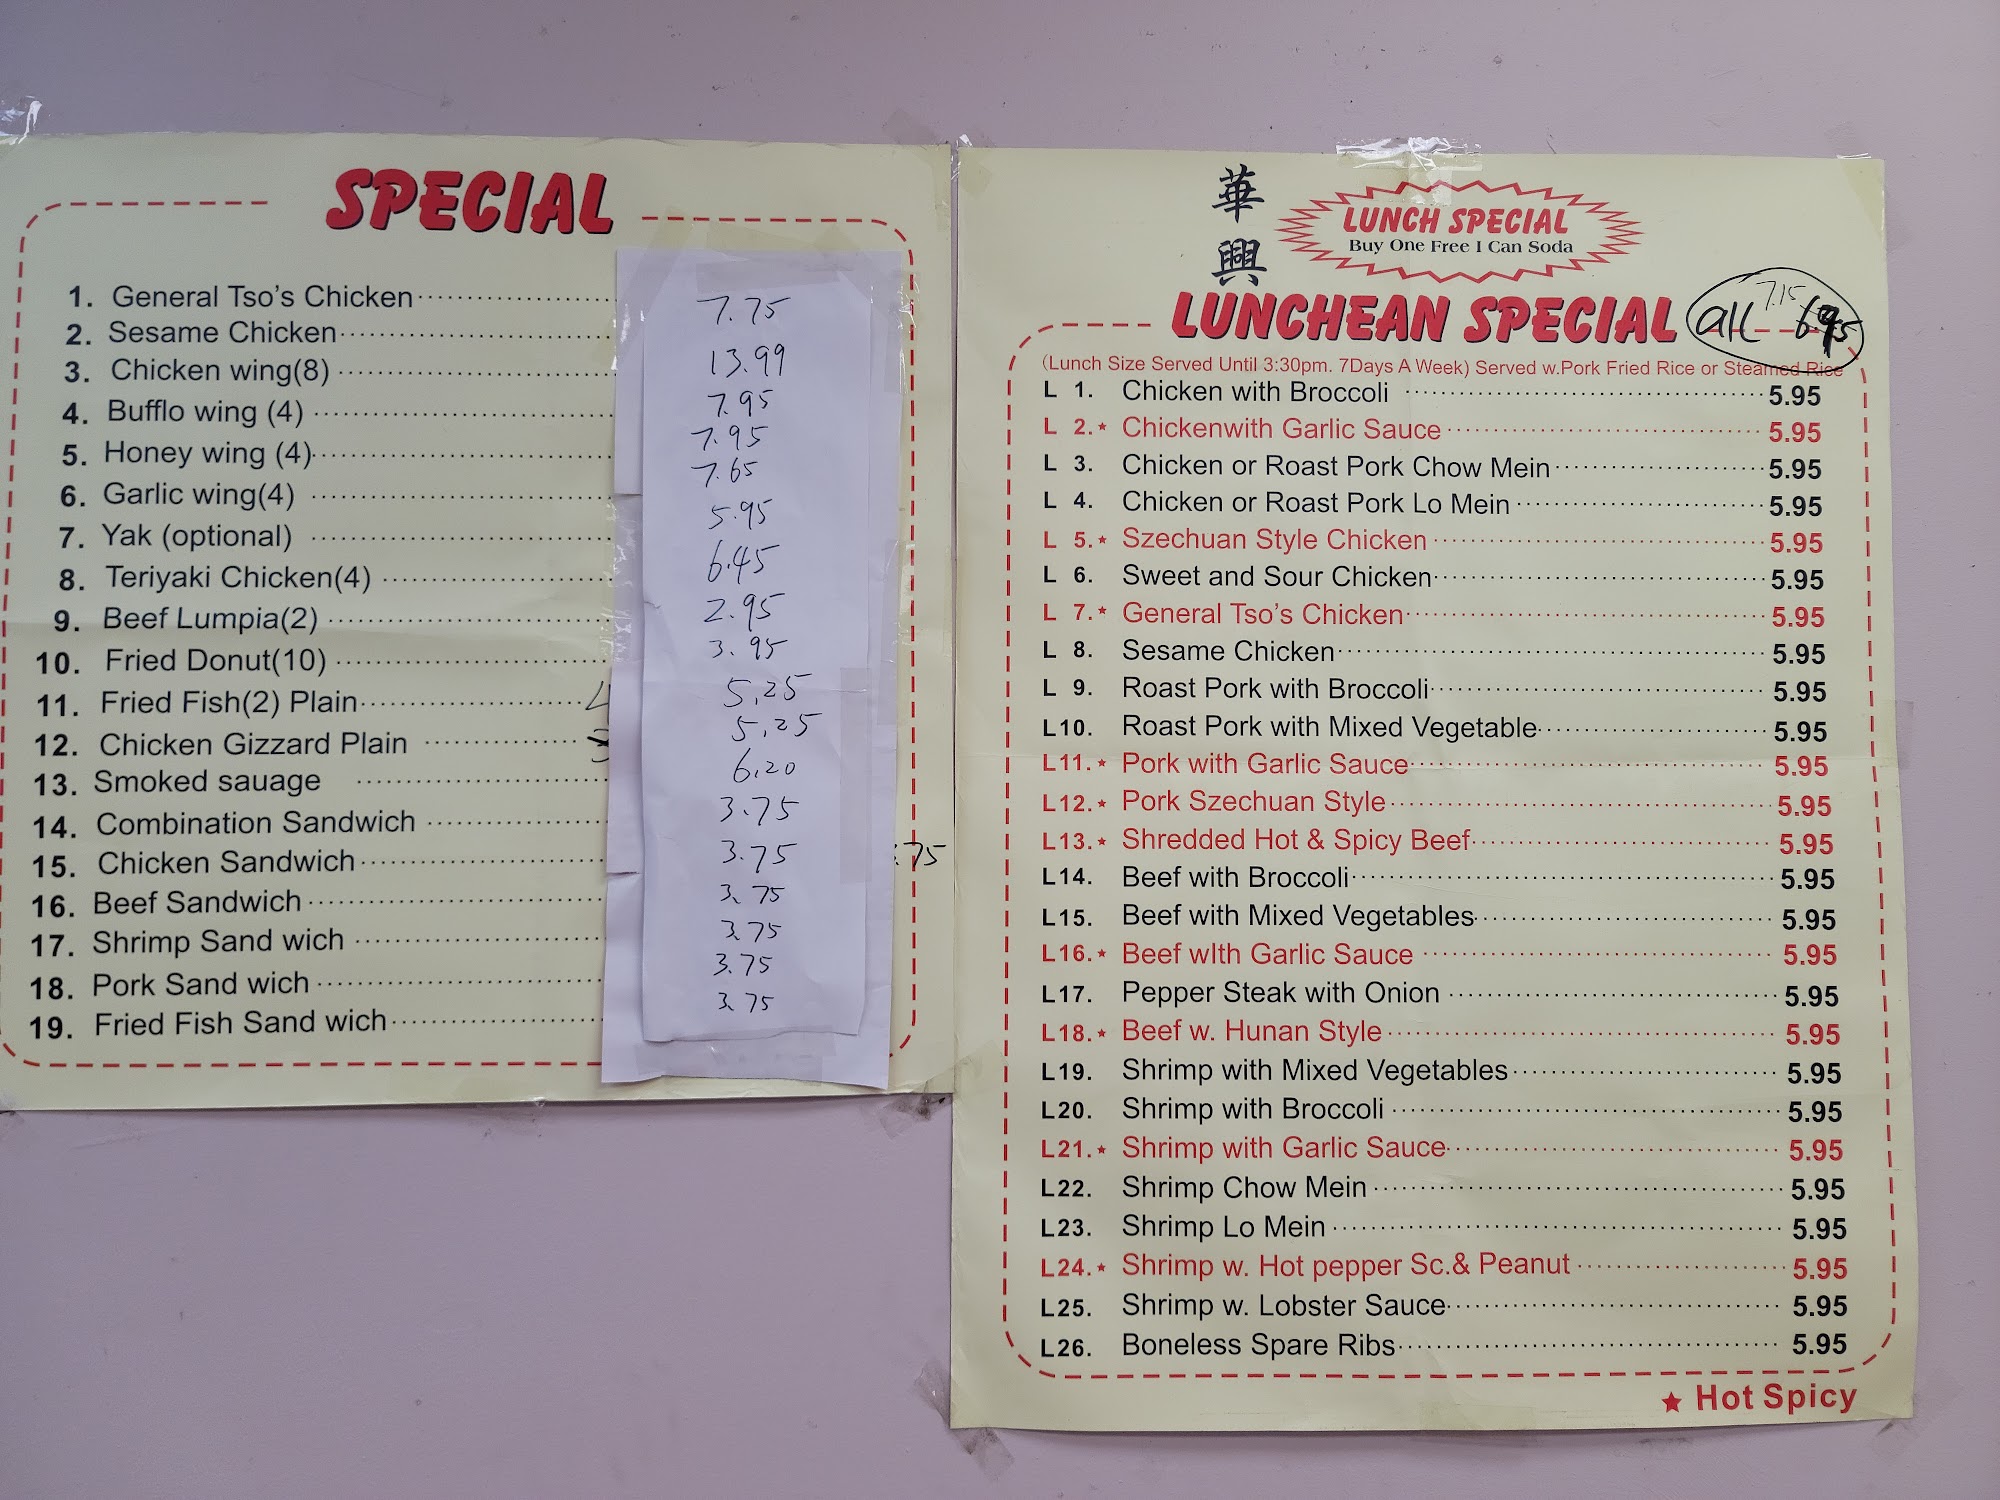 SPECIAL
1. General Tso's Chicken
2. Sesame Chicken
3. Chicken wing(8)
4. Bufflo wing (4)
5. Honey wing (4)
6. Garlic wing(4)
7. Yak (optional)
8. Teriyaki Chicken(4)
9. Beef Lumpia(2)
10. Fried Donut(10)
11. Fried Fish(2) Plain
12. Chicken Gizzard Plain
13. Smoked sauage
14. Combination Sandwich
15. Chicken Sandwich
16. Beef Sandwich
17. Shrimp Sand wich
18. Pork Sand wich
19. Fried Fish Sand wich
7.75
13.99
7.95
7.95
7.65
5.95
6.45
2.95
3.95
5.25
5.25
6.20
3.75
3.75
3.75
3.75
3.75
3.75
.75
華興
LUNCH SPECIAL
Buy One Free I Can Soda
LUNCHEAN SPECIAL
all 7.15 6.95
(Lunch Size Served Until 3:30pm. 7Days A Week) Served w.Pork Fried Rice or Steamed Rice
L 1. Chicken with Broccoli 5.95
L 2.★ Chickenwith Garlic Sauce 5.95
L 3. Chicken or Roast Pork Chow Mein 5.95
L 4. Chicken or Roast Pork Lo Mein 5.95
L 5.★ Szechuan Style Chicken 5.95
L 6. Sweet and Sour Chicken 5.95
L 7.★ General Tso's Chicken 5.95
L 8. Sesame Chicken 5.95
L 9. Roast Pork with Broccoli 5.95
L10. Roast Pork with Mixed Vegetable 5.95
L11.★ Pork with Garlic Sauce 5.95
L12.★ Pork Szechuan Style 5.95
L13.★ Shredded Hot & Spicy Beef 5.95
L14. Beef with Broccoli 5.95
L15. Beef with Mixed Vegetables 5.95
L16.★ Beef wIth Garlic Sauce 5.95
L17. Pepper Steak with Onion 5.95
L18.★ Beef w. Hunan Style 5.95
L19. Shrimp with Mixed Vegetables 5.95
L20. Shrimp with Broccoli 5.95
L21.★ Shrimp with Garlic Sauce 5.95
L22. Shrimp Chow Mein 5.95
L23. Shrimp Lo Mein 5.95
L24.★ Shrimp w. Hot pepper Sc.& Peanut 5.95
L25. Shrimp w. Lobster Sauce 5.95
L26. Boneless Spare Ribs 5.95
★ Hot Spicy